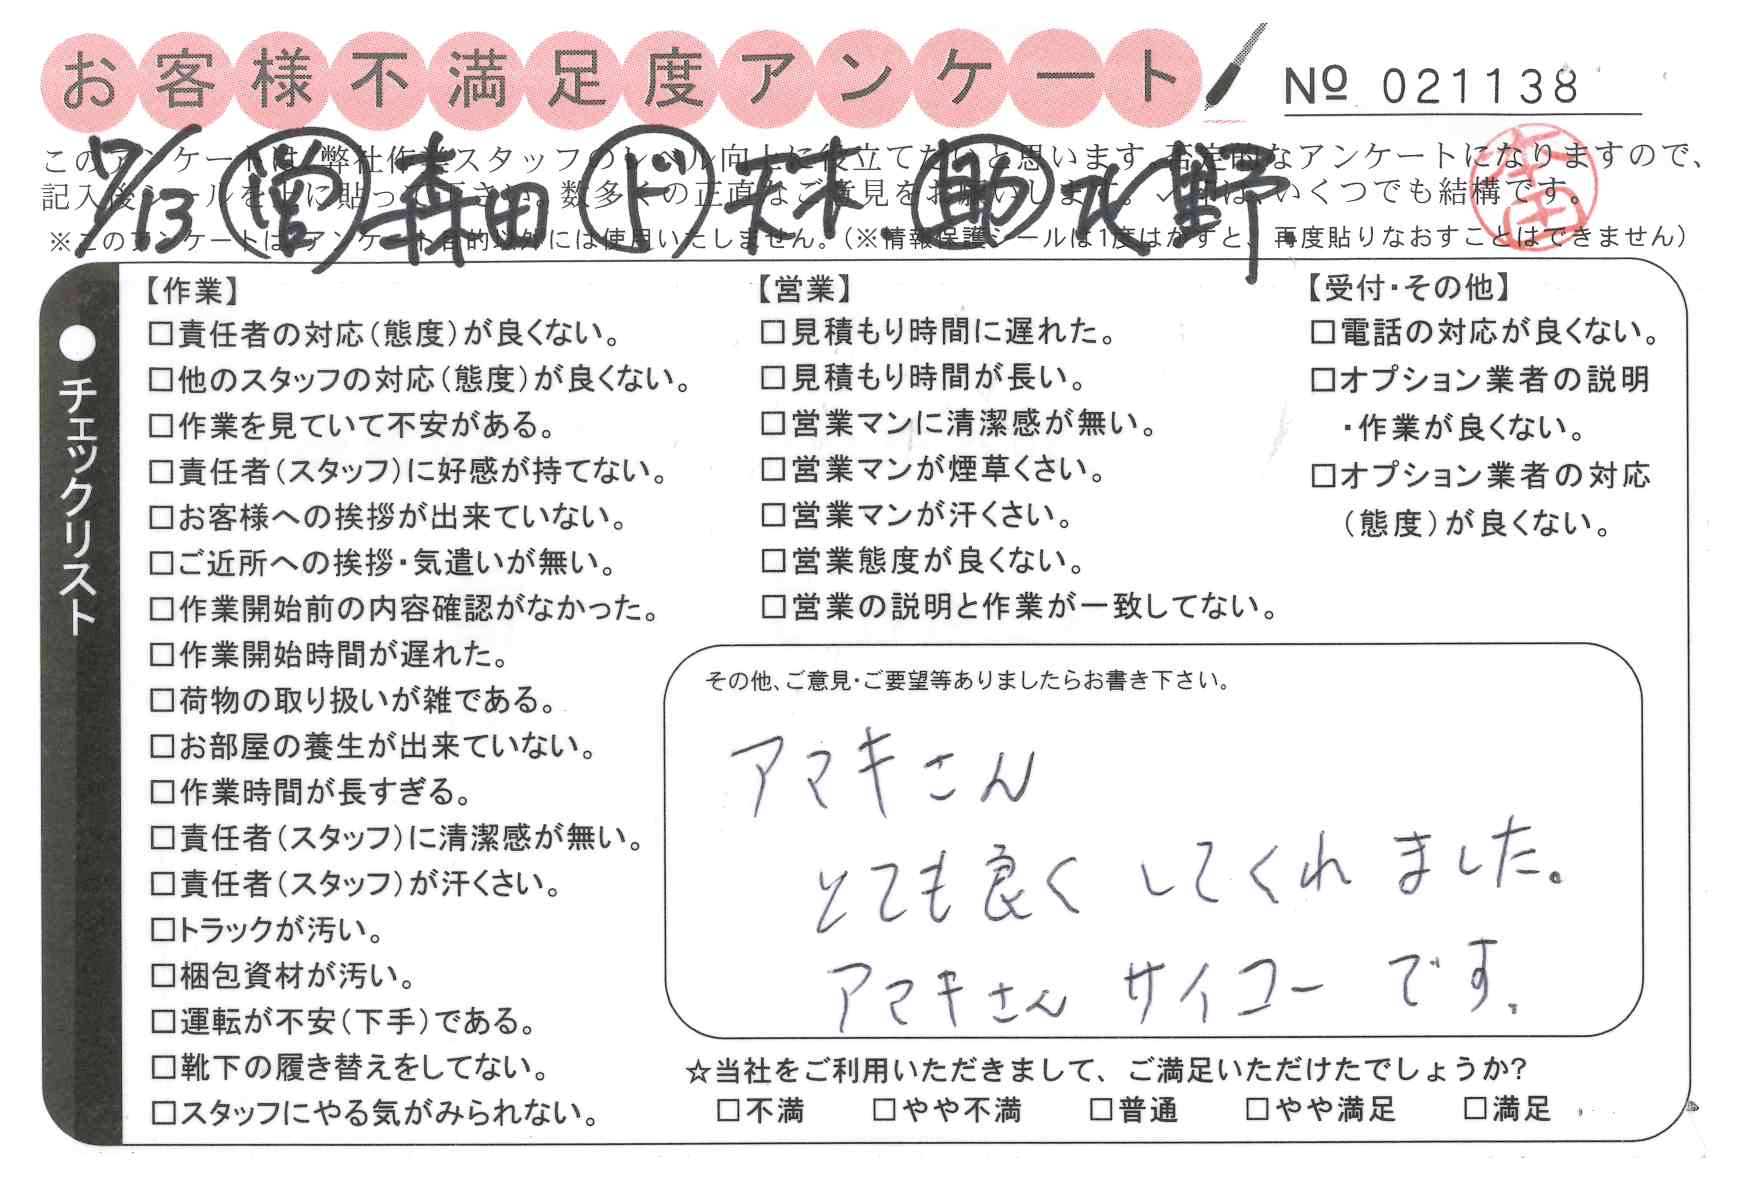 お客様不満足度アンケート
№ 021138
このアンケートは、弊社作業スタッフのレベル向上に役立てたいと思います。否定的なアンケートになりますので、
記入後シールを上に貼って下さい。数多くの正直なご意見をお願いします。✓印は、いくつでも結構です。
7/13 営 森田 ド 天木 助 水野
※このアンケートは、アンケート目的以外には使用いたしません。(※情報保護シールは1度はがすと、再度貼りなおすことはできません)
●チェックリスト
【作業】
□責任者の対応(態度)が良くない。
□他のスタッフの対応(態度)が良くない。
□作業を見ていて不安がある。
□責任者(スタッフ)に好感が持てない。
□お客様への挨拶が出来ていない。
□ご近所への挨拶・気遣いが無い。
□作業開始前の内容確認がなかった。
□作業開始時間が遅れた。
□荷物の取り扱いが雑である。
□お部屋の養生が出来ていない。
□作業時間が長すぎる。
□責任者(スタッフ)に清潔感が無い。
□責任者(スタッフ)が汗くさい。
□トラックが汚い。
□梱包資材が汚い。
□運転が不安(下手)である。
□靴下の履き替えをしてない。
□スタッフにやる気がみられない。
【営業】
□見積もり時間に遅れた。
□見積もり時間が長い。
□営業マンに清潔感が無い。
□営業マンが煙草くさい。
□営業マンが汗くさい。
□営業態度が良くない。
□営業の説明と作業が一致してない。
【受付・その他】
□電話の対応が良くない。
□オプション業者の説明
・作業が良くない。
□オプション業者の対応
(態度)が良くない。
その他、ご意見・ご要望等ありましたらお書き下さい。
アマキさん
とても良くしてくれました。
アマキさん サイコーです.
☆当社をご利用いただきまして、ご満足いただけたでしょうか?
□不満 □やや不満 □普通 □やや満足 □満足